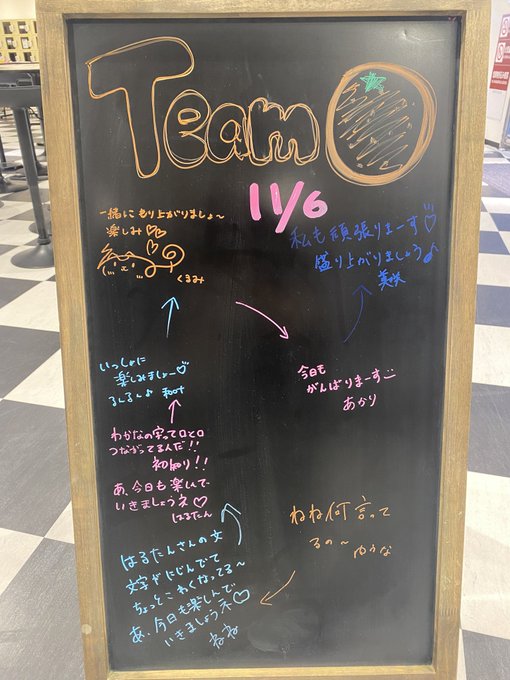 Team
11/6
一緒にもり上がりましょ〜
楽しみ♡♡
くるみ
私も頑張りまーす♡
盛り上がりましょう♪
美咲
いっしょに
楽しみましょー♡
るんるん♪
今日も
がんばりまーす
あかり
わかなの字って口と口
つながってるんだ!!
初知り!!
あ、今日も楽しんで
いきましょうネ♡
はるたん
ねね何言って
るの〜
ゆうな
はるたんさんの文
文字がにじんでて
ちょっとこわくなってる〜
あ、今日も楽しんで
いきましょうネ♡
ねね